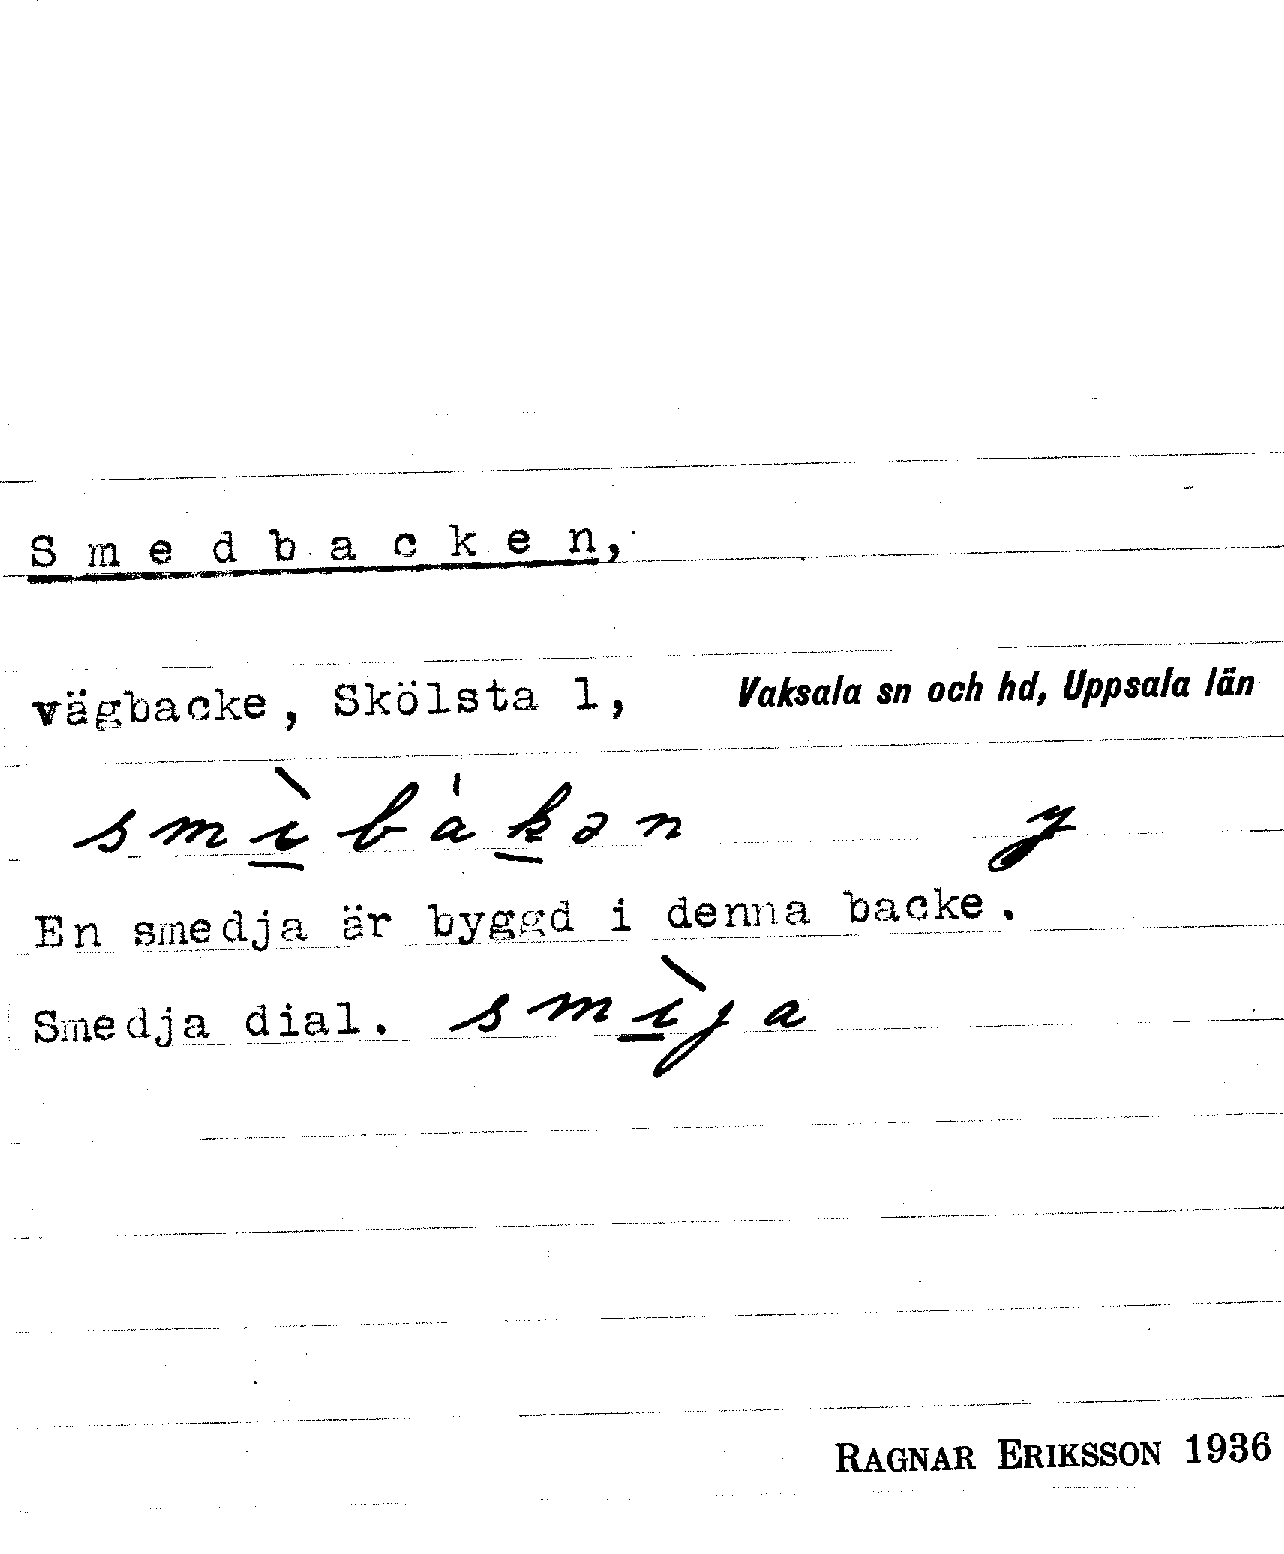 Smedbacken,
vägbacke, Skölsta 1, Vaksala sn och hd, Uppsala län
smì̠bák̠ən y
En smedja är byggd i denna backe.
Smedja dial. smì̠ja
RAGNAR ERIKSSON 1936